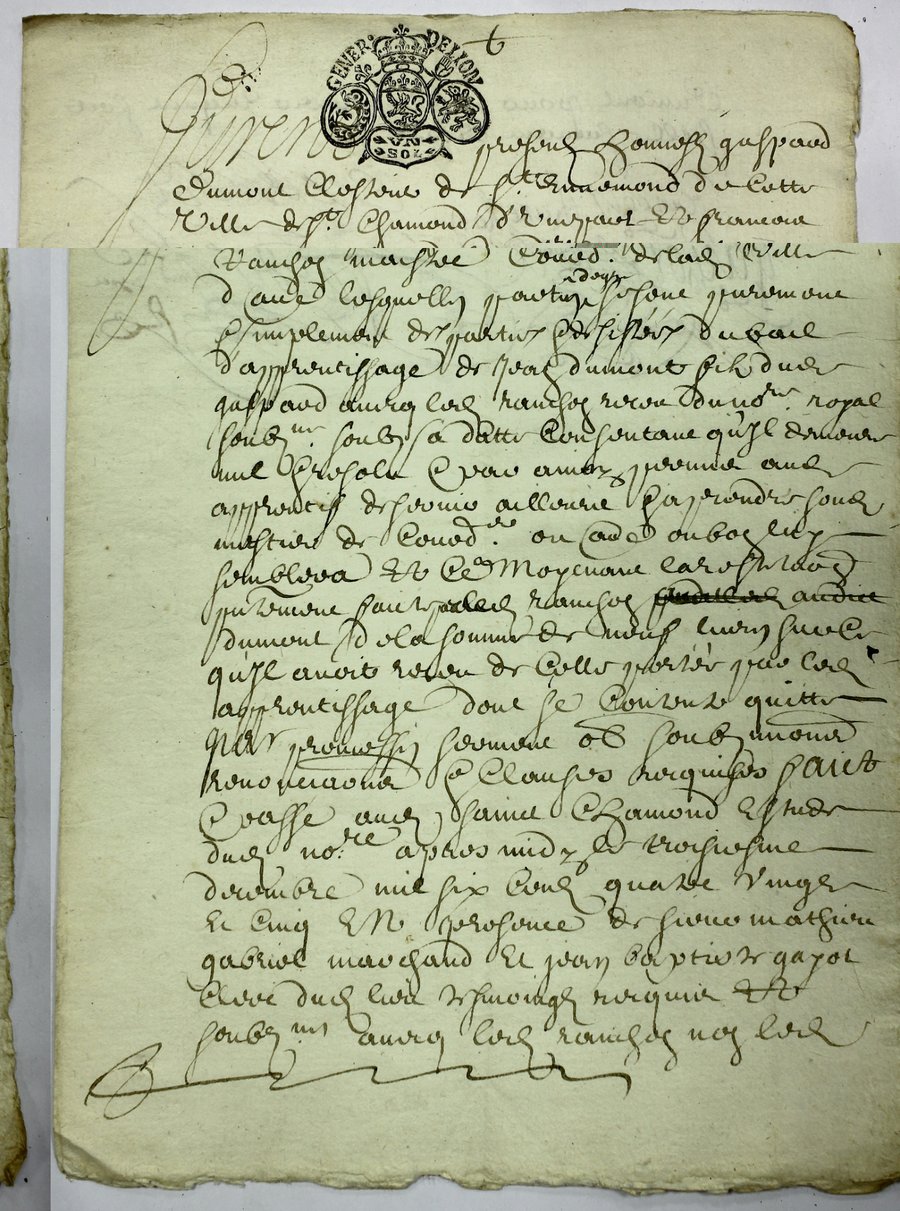 GENER. DE LION
VN
SOL
Furent presens honneste gaspard
Dumont Clostrier de St. Ennemond de Cette
Ville de St. Chamond d'Une part Et francois
Ranchon maistre de lad. Ville
d'autre lesquelles parties se sont purement
Et simplement des parties desistées du bail
d'apprentissage de Jean dumont fils dud.
gaspard avecq led. ranchon receu du nore. royal
soubne. soubz sa datte Consentant qu'Il demeure
nul Et resolu
apprentif de service ailleurs Et aprendre soud.
mestier de ou bon luy
semblera Et Ce Moyenant
purement faite aud. ranchon aud.
dumont de la somme de neuf livres sur Celle
qu'Il avoit receu de Celle portée par led.
apprentissage dont se Contente quitte
Par promesses serment ob. soubzmions
renonciaons Et Clauses requises faict
Et passe aud. Saint Chamond Estude
dud. nore. apres midy le troisiesme
decembre mil six Cens quatre vingt
Et Cinq EN presence de sieur mathieu
gabriel marchand Et jean baptiste gayot
Clerc dud. lieu tesmoings requis Et
soubznes avecq led. ranchon non led.